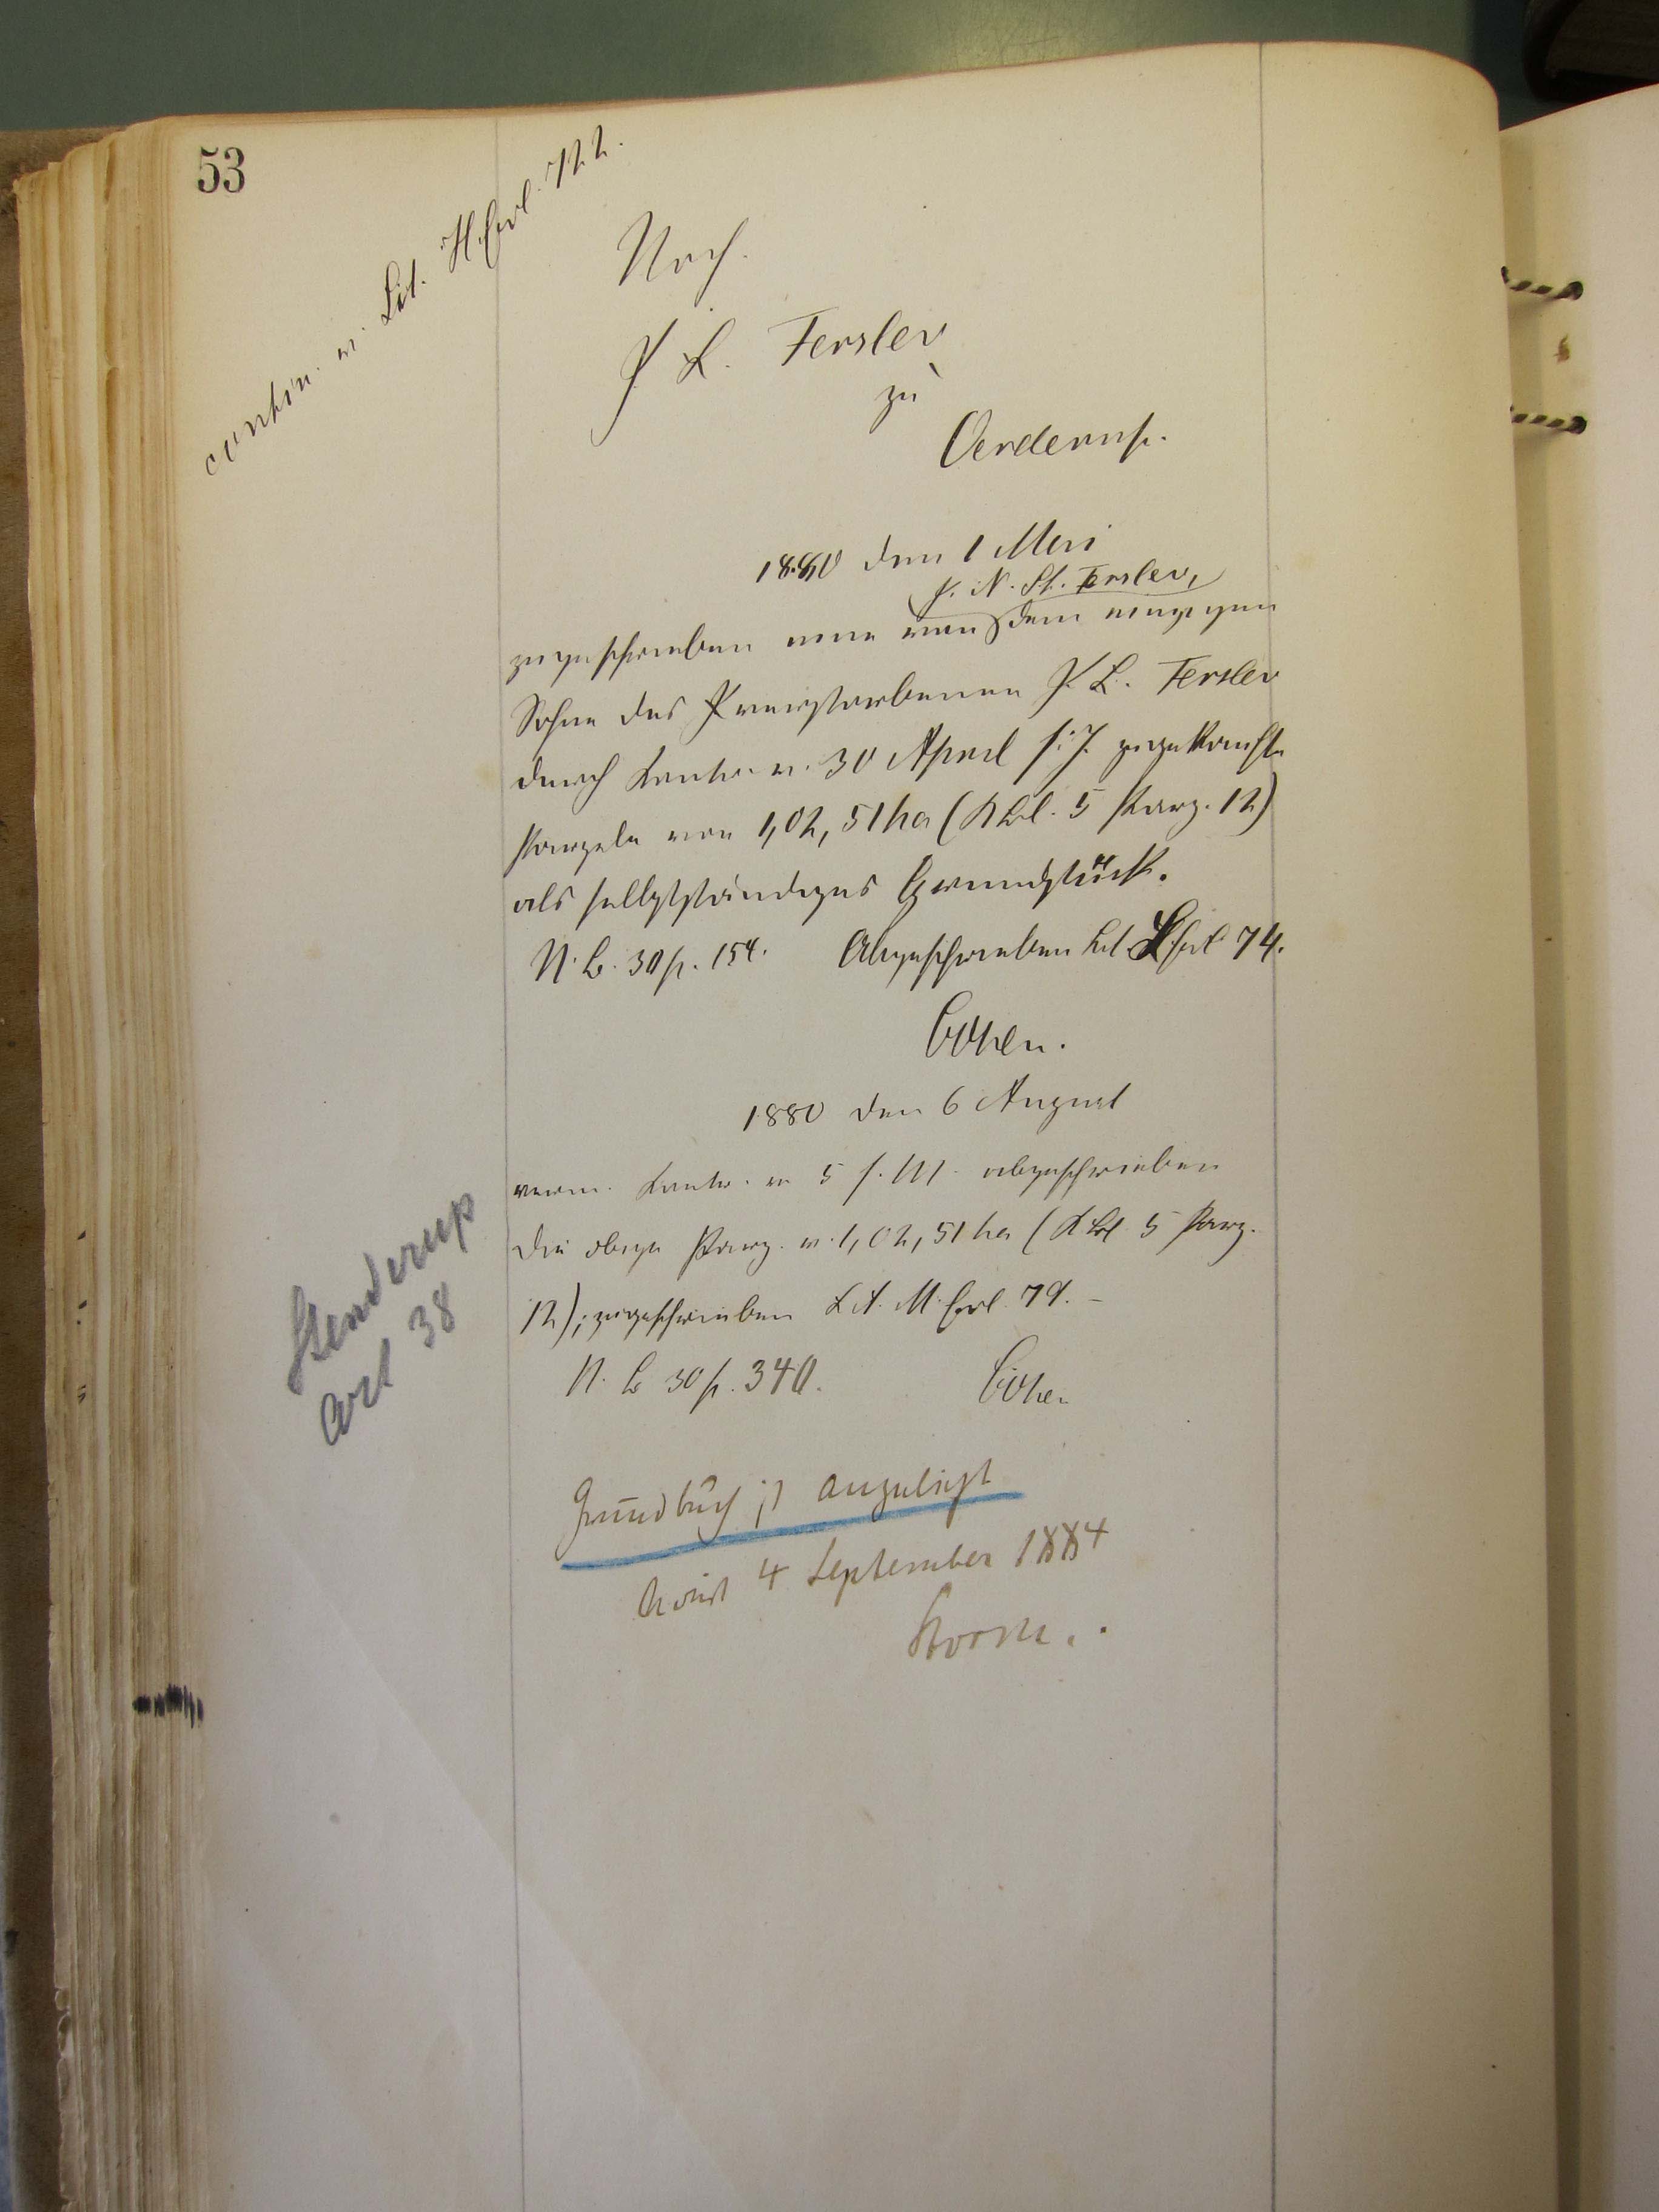 53
contin. v. Lit. H. fol. 122.
Noch.
J. L. Fersler
zu
Oerderup.
1880 den 1 Mai
J. N. St. Fersler,
zugeschrieben eine von dem einzigen
Sohne des verstorbenen J. L. Fersler
durch Contr. v. 30 April d. J. zugekaufte
Parzele von 1,02,51 ha (Kbl. 5 Parz. 12)
als selbstständiges Grundstück.
N. B. 30 p. 154. Abgeschrieben Lit fol 74.
1880 den 6 August
verm. Contr. v. 5 d. M. abgeschrieben
die obige Parz. v. 1,02,51 ha (Kbl. 5 Parz.
12); zugeschrieben Lit. M. fol. 79. –
N. B 30 p. 340.
Stenderup
Art 38
Grundbuch ist angelegt
4 September 1884